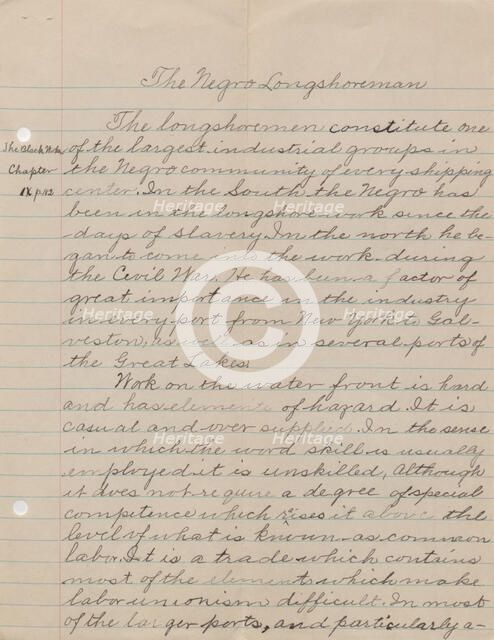 The Negro Longshoreman
The longshoremen constitute one
of the largest industrial groups in
the Negro community of every shipping
center. In the South the Negro has
been in the longshore work since the
days of slavery. In the north he be-
gan to come into the work during
the Civil War. He has been a factor of
great importance in the industry
in every port from New York to Gal-
veston, as well as in several ports of
the Great Lakes.
Work on the water front is hard
and has elements of hazard. It is
casual and over supplied. In the sense
in which the word skill is usually
employed it is unskilled, Although
it does not require a degree of special
competence which rises it above the
level of what is known as common
labor. It is a trade which contains
most of the elements which make
labor unionism difficult. In most
of the larger ports, and particularly a-
The Black Worker
Chapter
IX p.182
Heritage
Heritage
Heritage
Heritage
Heritage
Heritage
Heritage
Heritage
Heritage
©